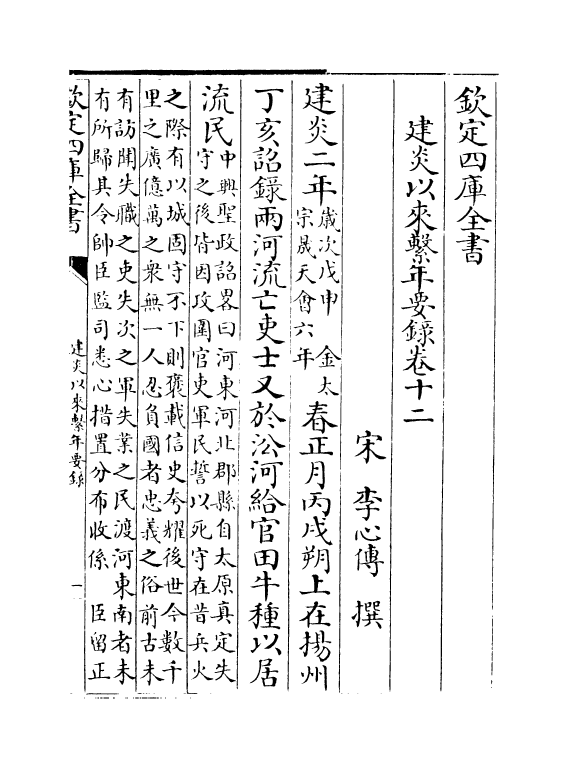 欽定四庫全書
建炎以來繫年要錄卷十二
宋 李心傳 撰
建炎二年
歲次戊申 金太
宗晟天會六年
春正月丙戌朔上在揚州
丁亥詔錄兩河流亡吏士又於㳂河給官田牛種以居
流民
中興聖政詔畧曰河東河北郡縣自太原真定失
守之後皆因攻圍官吏軍民誓以死守在昔兵火
之際有以城固守不下則襃載信史夸耀後世今數千
里之廣億萬之衆無一人忍負國者忠義之俗前古未
有訪聞失職之吏失次之軍失業之民渡河東南者未
有所歸其令帥臣監司悉心措置分布收係 臣留正
欽定四庫全書
建炎以來繫年要錄
一